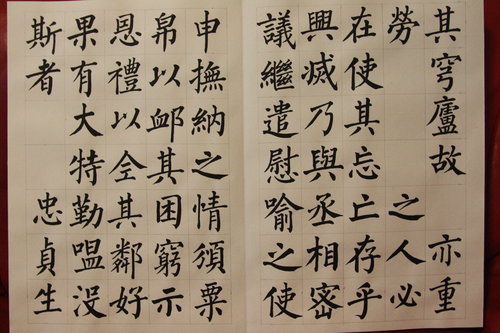 其穹廬故 亦重
勞 之人必
在使其忘亡存乎
興滅乃與丞相密
議繼遣慰喻之使
申撫納之情頒粟
帛以䘏其困窮示
恩禮以全其鄰好
果有大特勤嗢沒
斯者 忠貞生